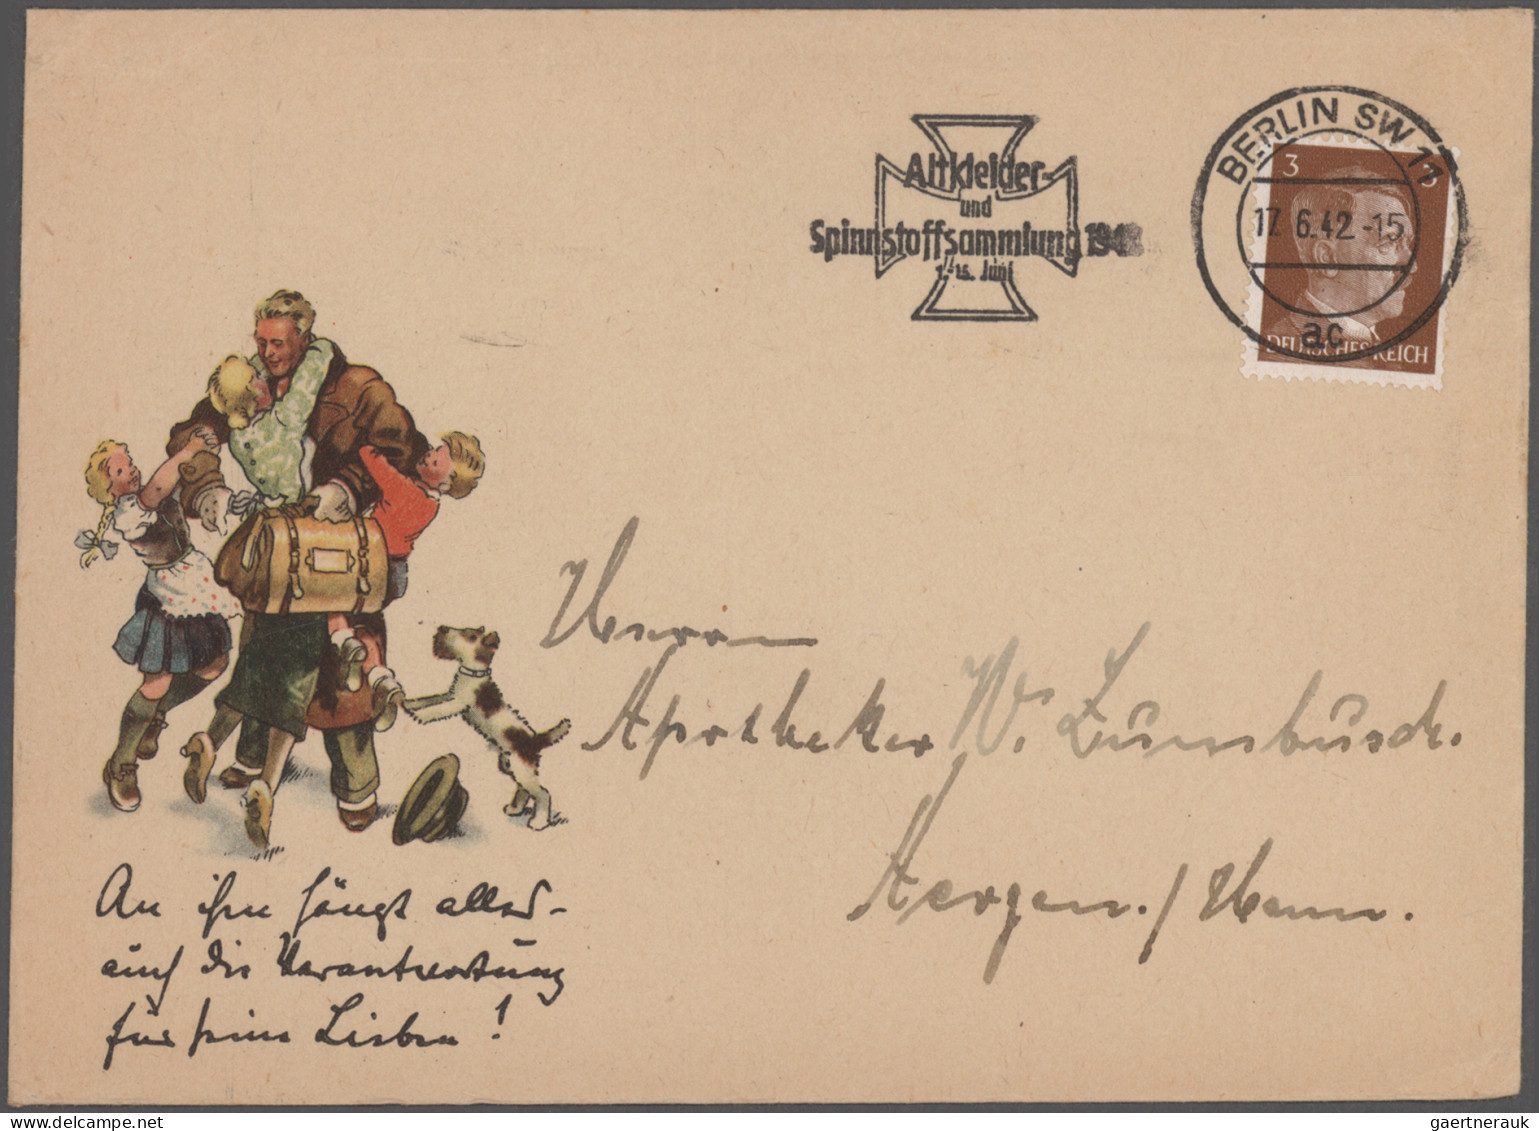 BERLIN SW 11
17.6.42-15
ac
3 3
DEUTSCHES REICH
Altkleider-
und
Spinnstoffsammlung 1942
1.-15. Juni
Herrn
Apotheker W. Zumbusch.
An ihm hängt alles -
auch die Verantwortung
für seine Lieben!
www.delcampe.net
gaertnerauk